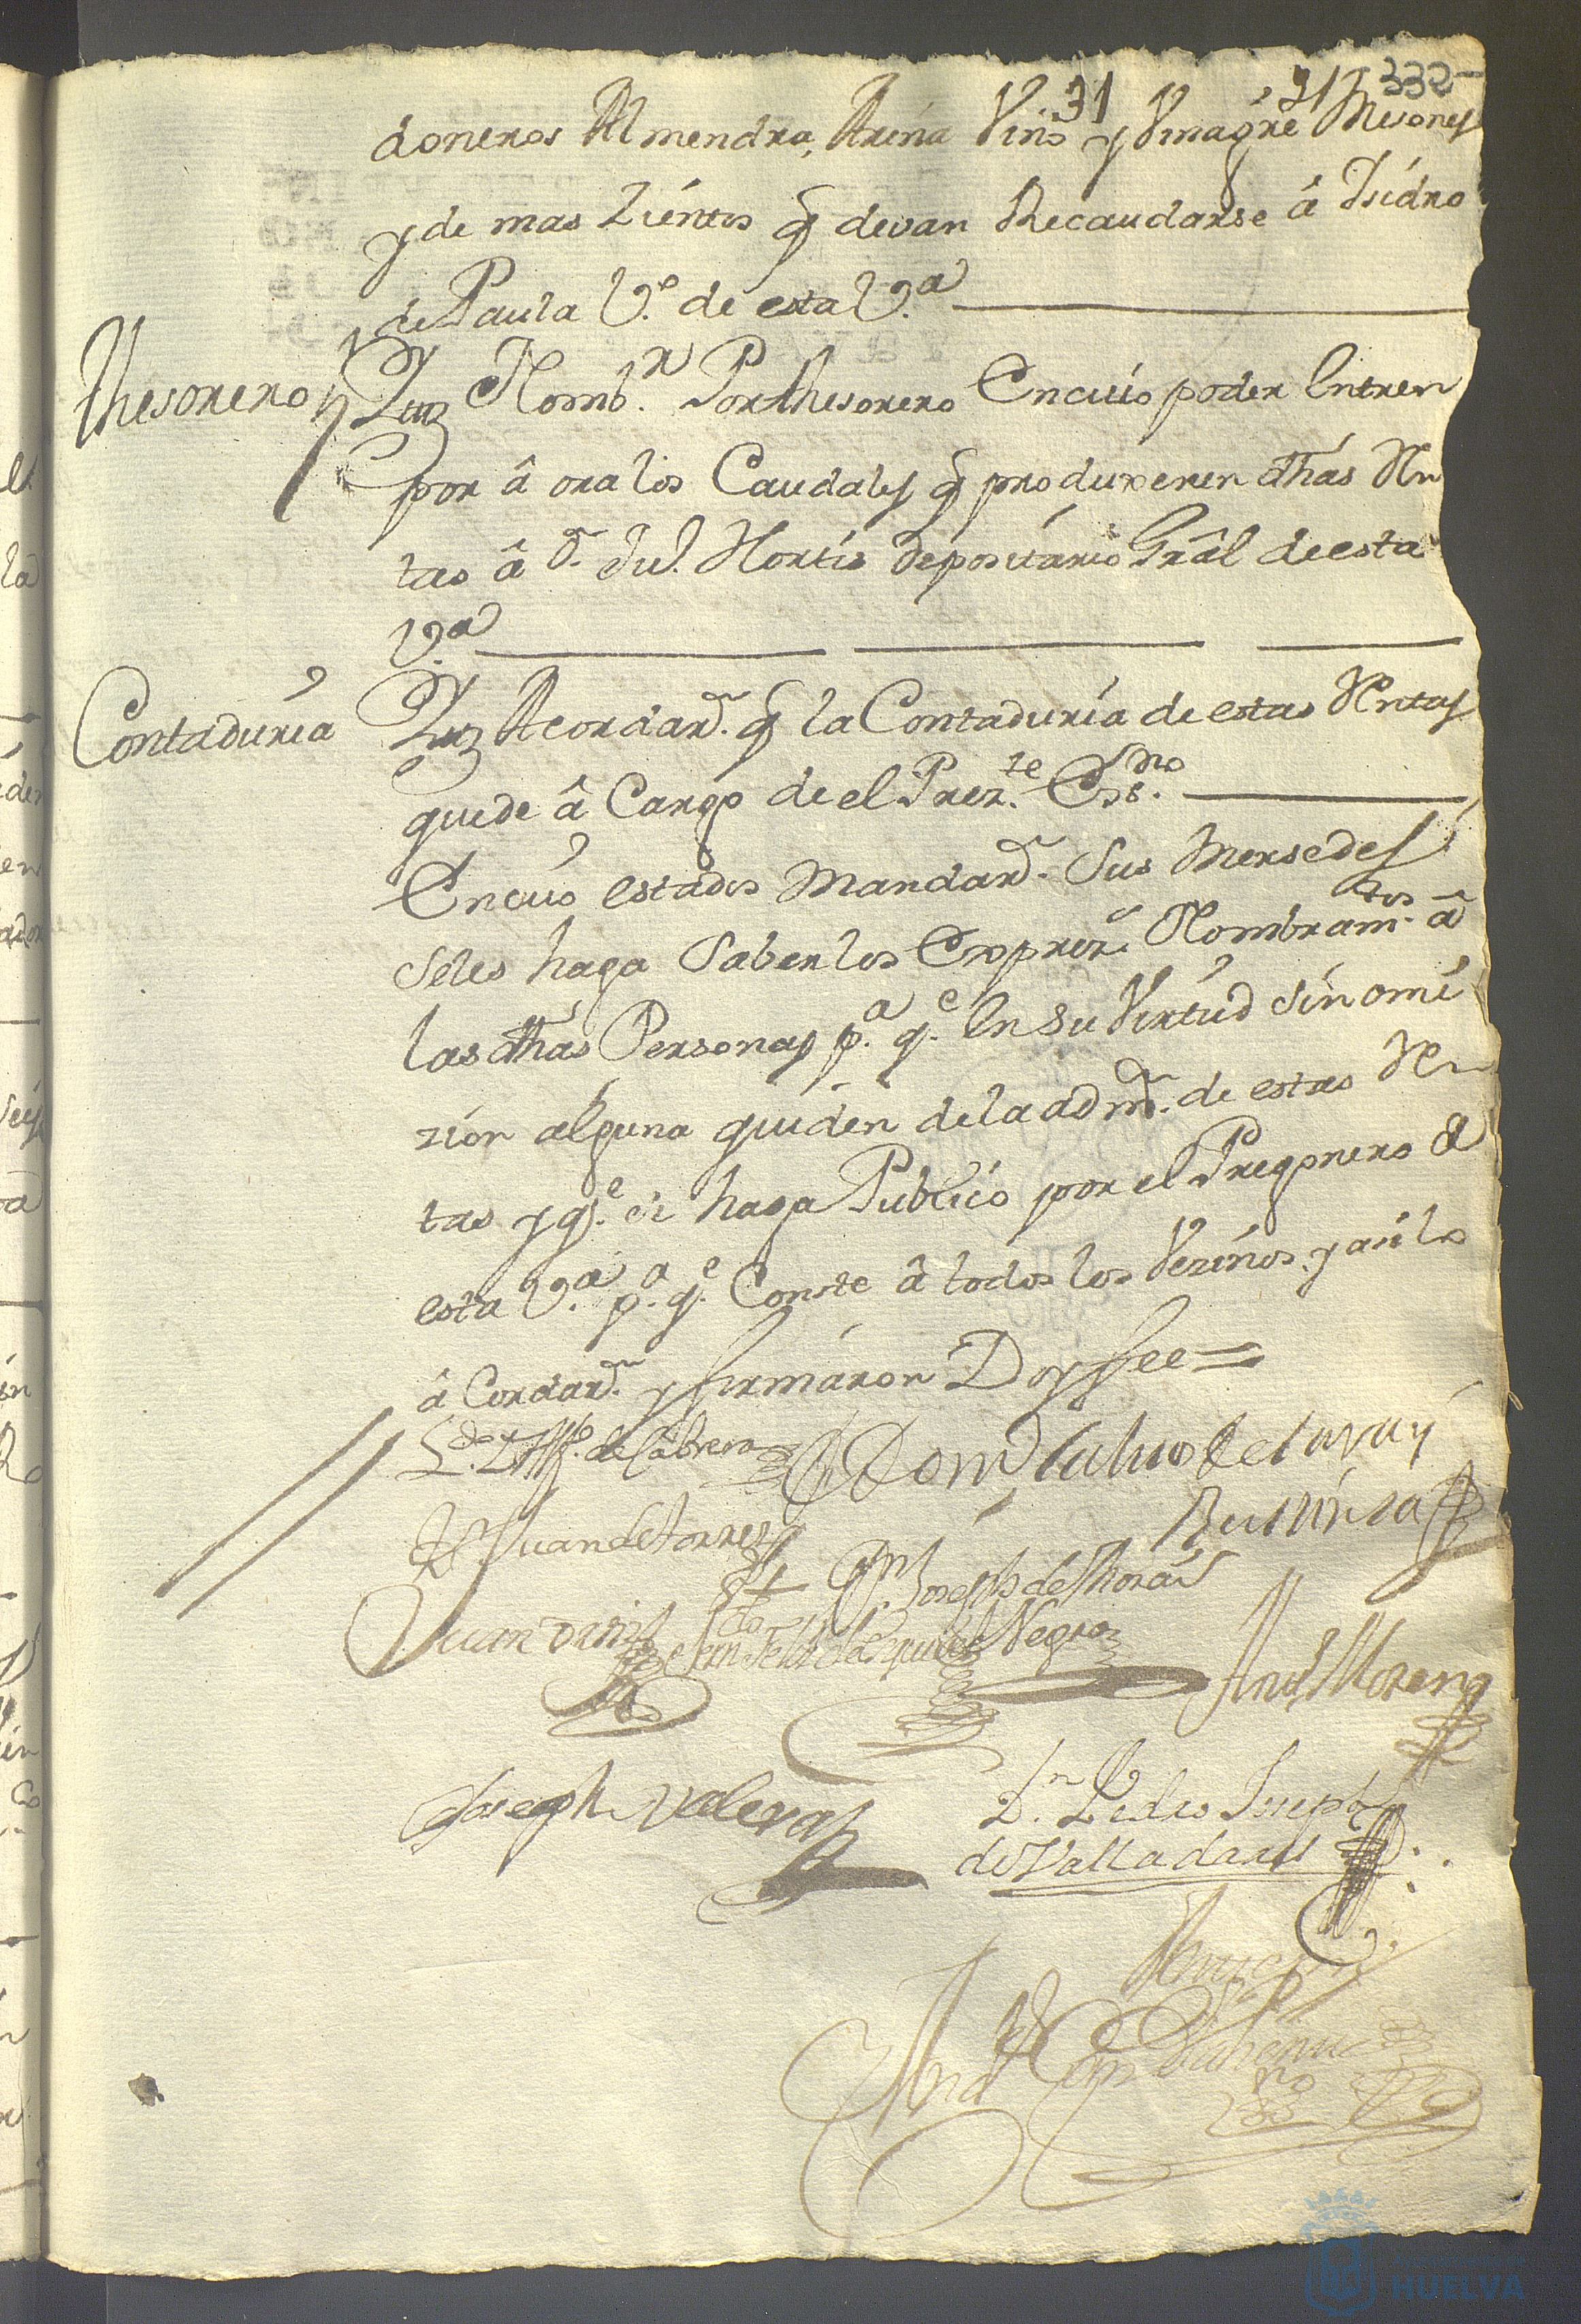 31 31 332
doneros Almendra, Arina Vino y Vinagre Mesones
y de mas Zientos q devan Recaudarse â Isidro
de Paula V.º de esta V.ª
Thesorero
Nomb.n Por thesorero En cuio poder Entren
por â ora los Caudales q produxeren dhas Rn
tas â D.n Ju.º Hortis Depositario Grâl de esta
V.ª
Contaduría
Acordar.n q la Contaduría de estas Rentas
quede â Cargo de el Prez.te Ess.no
En cuio estados Mandar.n Sus Mersedes
Seles haga Saber los Exprez.s Nombram.tos â
las dhas Personas p.ª q.e En su Virtud sin omi
zión alguna quiden de la adm.n de estas Rn
tas y q.e se haga Publico por el Pregonero d
esta V.ª p.ª q.e Conste â todos los Vezinos y asi lo
â Cordar.n y firmáron Doy fee =
L.do de Cabrera
Juan de torres
D.n Joseph de Mora
Juan
Negro
And.s Moreno
Joseph Valera
D.n Pedro Joseph
de Valladares
HUELVA